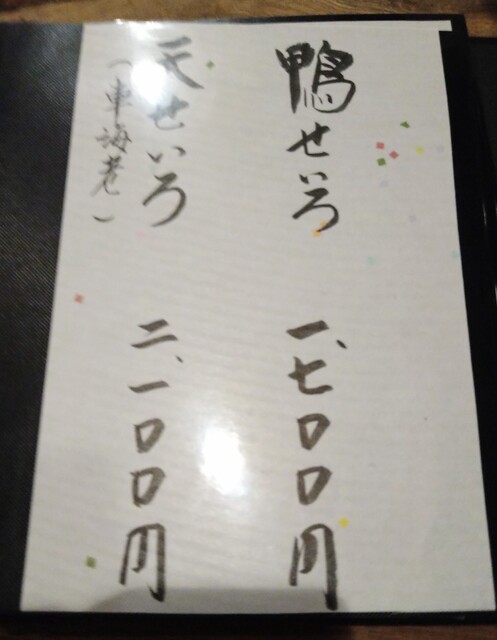 鴨せいろ 一、七〇〇円
天せいろ 二、一〇〇円
（車海老）